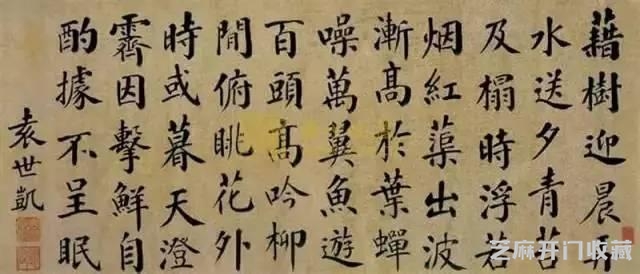 藉樹迎晨耳
水送夕青苔
及榻時浮若
烟紅蕖出波
漸高於葉蟬
噪萬翼魚遊
百頭高吟柳
閒俯眺花外
時或暮天澄
霽因擊鮮自
酌據不呈眠
袁世凱
芝麻开门收藏